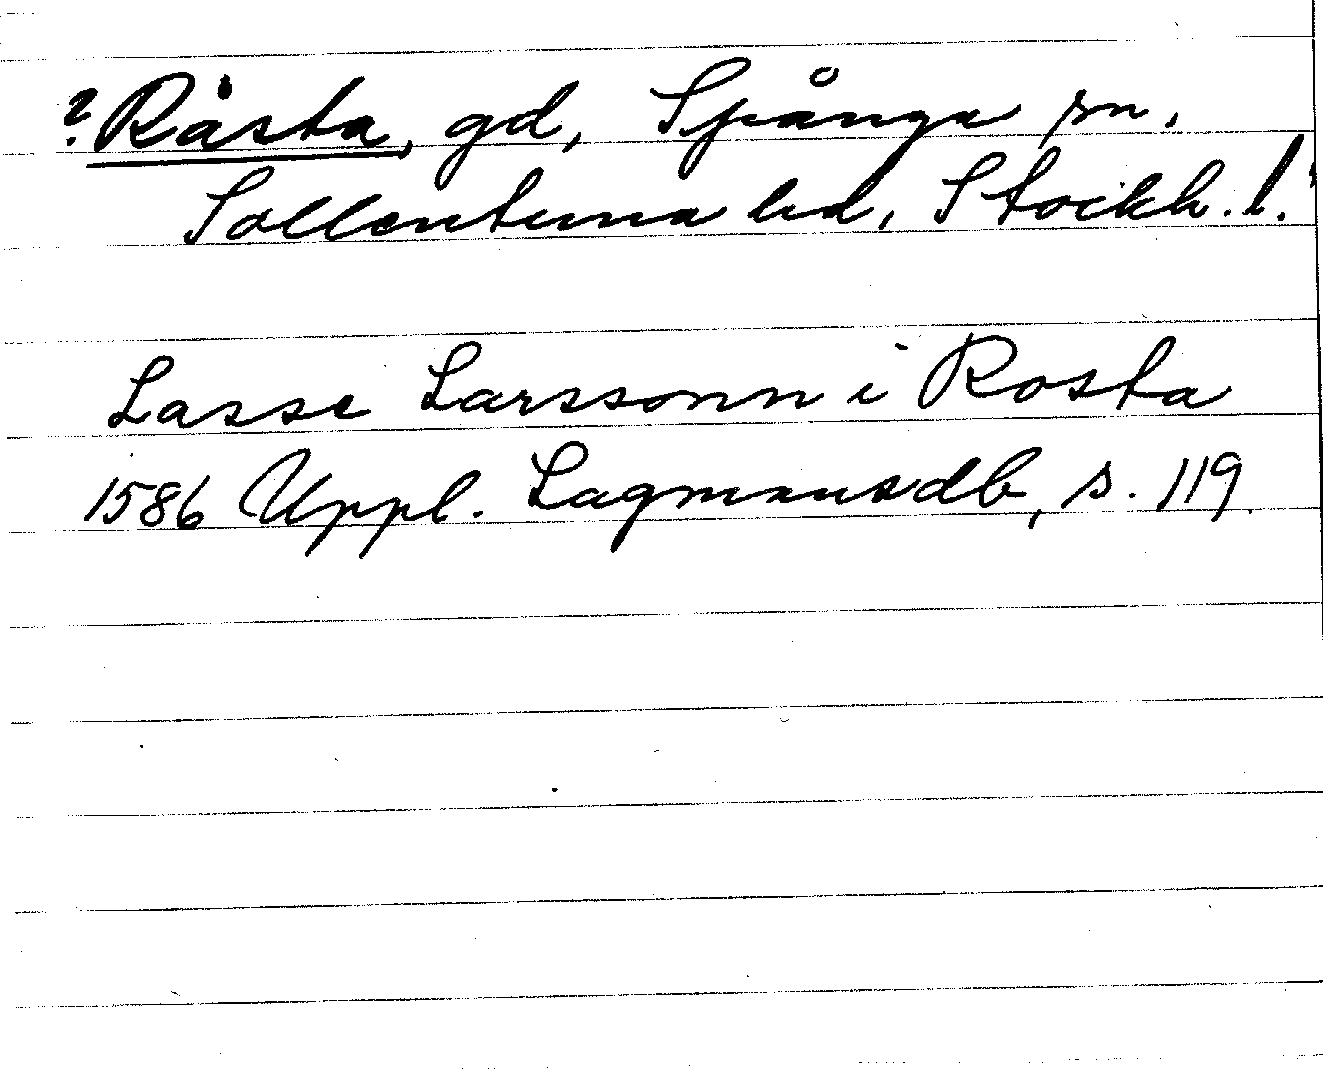 ? Råsta, gd, Spånga sn,
Sollentuna hd, Stockh. l.
Lasse Larssonn i Rosta
1586 Uppl. Lagmansdb, s. 119.